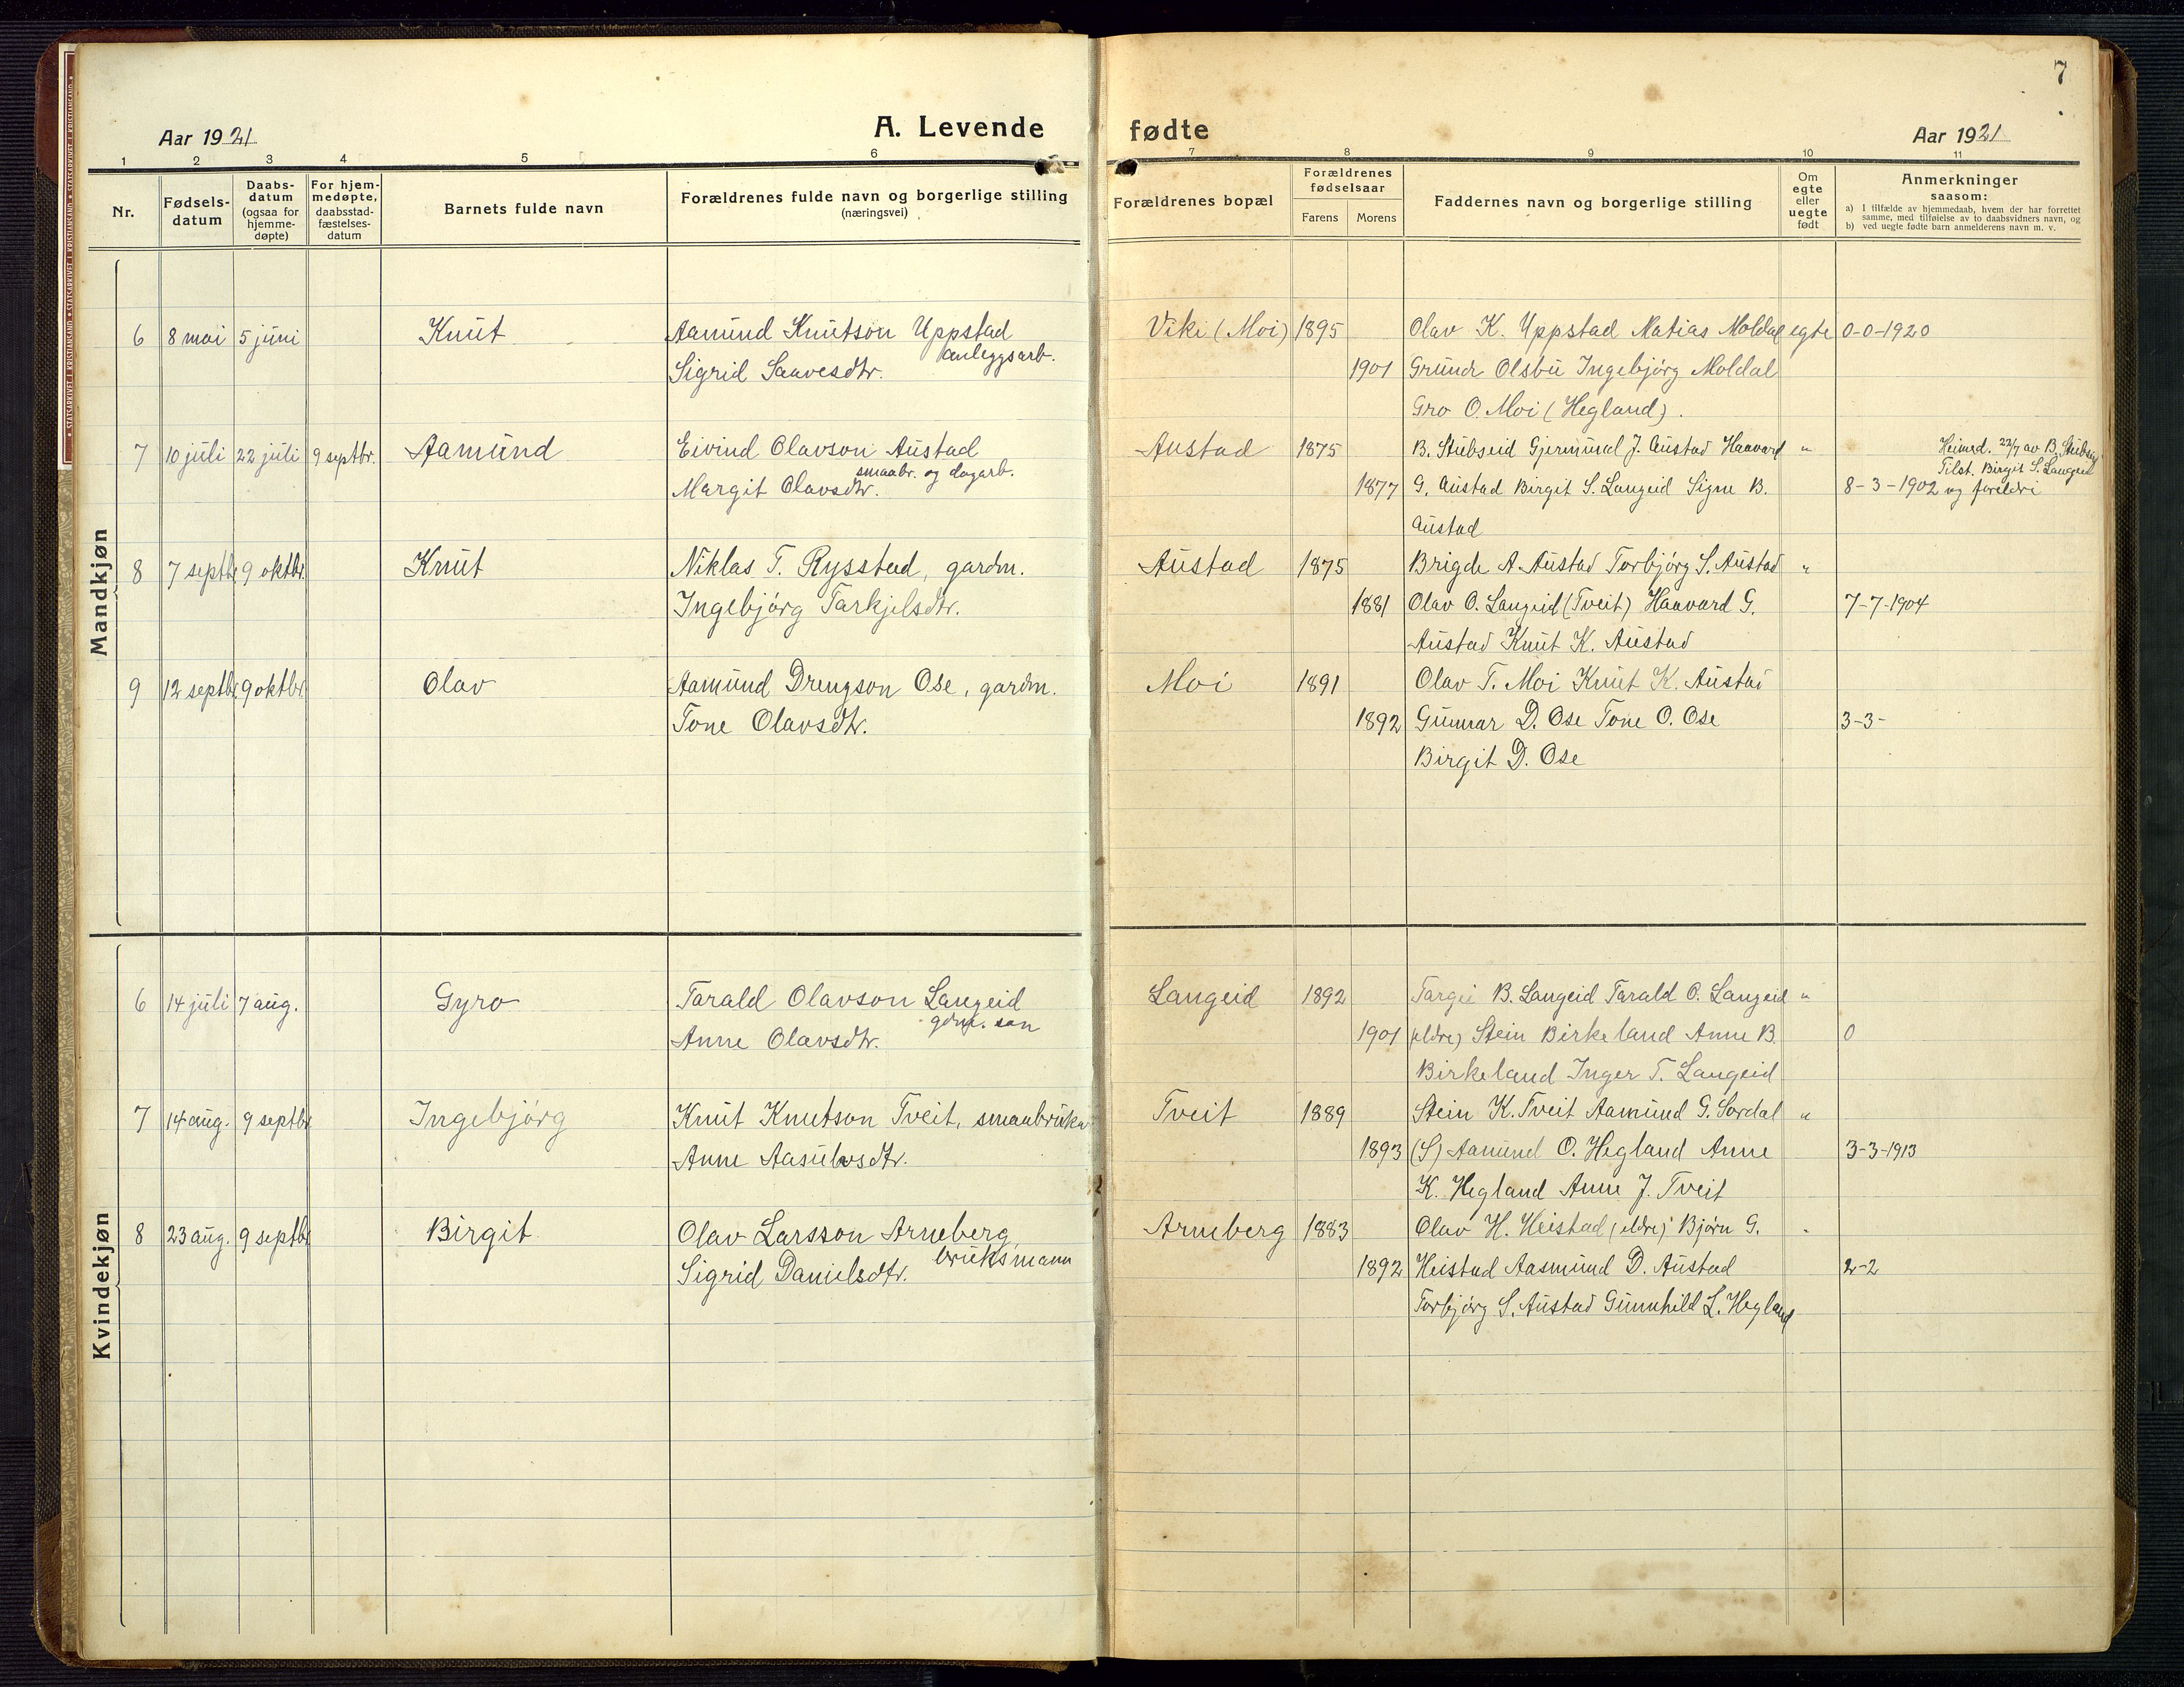 7
Aar 1921
A. Levende fødte
Aar 1921
1 2 3 4 5 6 7 8 9 10 11
Nr.
Fødsels-
datum
Daabs-
datum
(ogsaa for
hjemme-
døpte)
For hjem-
medøpte,
daabsstad-
fæstelses-
datum
Barnets fulde navn
Forældrenes fulde navn og borgerlige stilling
(næringsvei)
Forældrenes bopæl
Forældrenes
fødselsaar
Farens Morens
Faddernes navn og borgerlige stilling
Om
egte
eller
uegte
født
Anmerkninger
saasom:
a) I tilfælde av hjemmedaab, hvem der har forrettet
samme, med tilføielse av to daabsvidners navn, og
b) ved uegte fødte barn anmelderens navn m. v.
Mandkjøn
6 8 mai 5 juni Knut Aamund Knutson Uppstad Viki (Moi) 1895 Olav K. Uppstad Matias Moldal egte 0-0-1920
anleggsarb.
Sigrid Saavesdtr. 1901 Grunde Olsbu Ingebjörg Moldal
Gro O. Moi (Hegland).
7 10 juli 22 juli 9 septbr. Aamund Eivind Olavson Austad Austad 1875 B. Stubseid Gjermund J. Austad Haavard " Heimd. 22/7 av B. Stubseid
smaabr. og dagarb. Tilst. Birgit S. Langeid
Margit Olavsdtr. 1877 G. Austad Birgit S. Langeid Signe B. 8-3-1902 og foreldri
Austad
8 7 septbr. 9 oktbr. Knut Niklas T. Rysstad, gardm. Austad 1875 Brigde A. Austad Torbjörg S. Austad "
Ingebjörg Tarkjelsdtr. 1881 Olav O. Langeid (Tveit) Haavard G. 7-7-1904
Austad Knut K. Austad
9 12 septbr. 9 oktbr. Olav Aamund Drengson Ose, gardm. Moi 1891 Olav T. Moi Knut K. Austad
Tone Olavsdtr. 1892 Gunnar D. Ose Tone O. Ose 3-3-
Birgit D. Ose
Kvindekjøn
6 14 juli 7 aug. Gyro Tarald Olavson Langeid Langeid 1892 Targei B. Langeid Tarald O. Langeid "
gdm. son
Anne Olavsdtr. 1901 (eldre) Stein Birkeland Anne B. 0
Birkeland Inger T. Langeid
7 14 aug. 9 septbr Ingebjörg Knut Knutson Tveit, smaabrukar Tveit 1889 Stein K. Tveit Aamund G. Sordal "
Anne Aasulvsdtr. 1893 (S) Aamund O. Hegland Anne 3-3-1913
K. Hegland Anne J. Tveit
8 23 aug. 9 septbr Birgit Olav Larsson Arneberg Arneberg 1883 Olav H. Heistad (eldre) Bjørn G. "
bruksmann
Sigrid Danielsdtr. 1892 Heistad Aasmund D. Austad 2-2
Torbjörg S. Austad Gunnhild L. Hegland